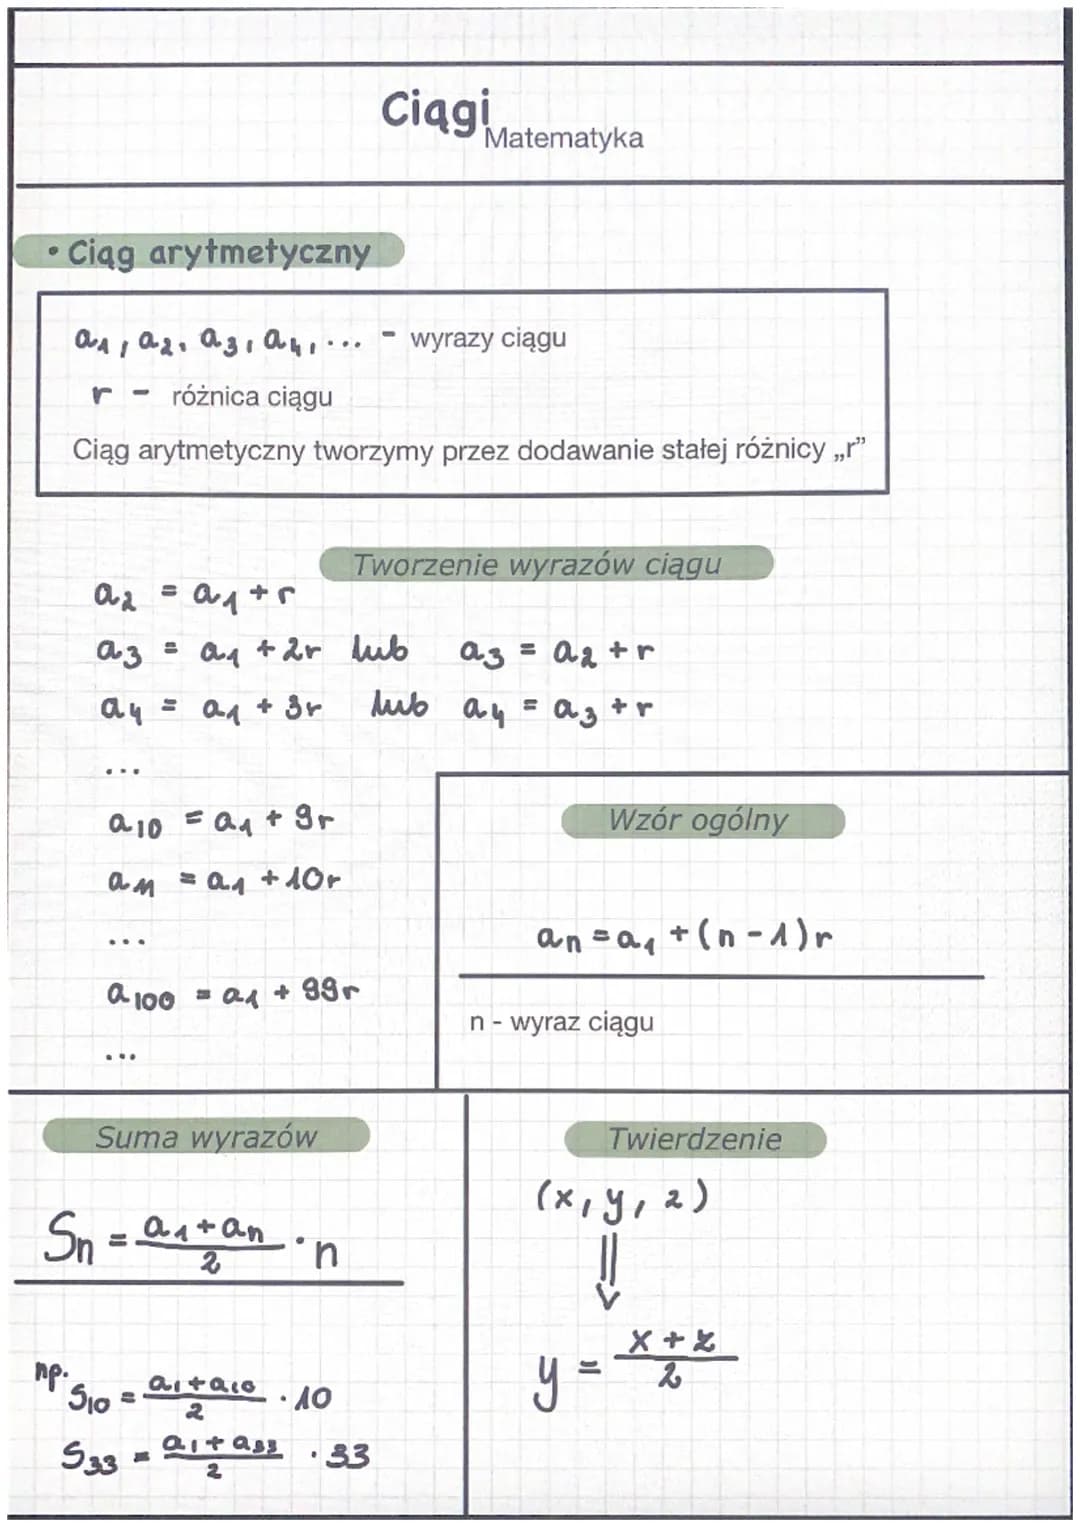 Ciągi
Matematyka
• Ciąg arytmetyczny
a₁, a₂, a₃, a₄, ... - wyrazy ciągu
r - różnica ciągu
Ciąg arytmetyczny tworzymy przez dodawanie stałej różnicy „r”
Tworzenie wyrazów ciągu
a₂ = a₁ + r
a₃ = a₁ + 2r lub a₃ = a₂ + r
a₄ = a₁ + 3r lub a₄ = a₃ + r
...
a₁₀ = a₁ + 9r
a₁₁ = a₁ + 10r
...
a₁₀₀ = a₁ + 99r
...
Wzór ogólny
aₙ = a₁ + (n - 1)r
n - wyraz ciągu
Suma wyrazów
Sₙ = (a₁ + aₙ)/2 · n
np.
S₁₀ = (a₁ + a₁₀)/2 · 10
S₃₃ = (a₁ + a₃₃)/2 · 33
Twierdzenie
(x, y, z)
⇓
y = (x + z)/2